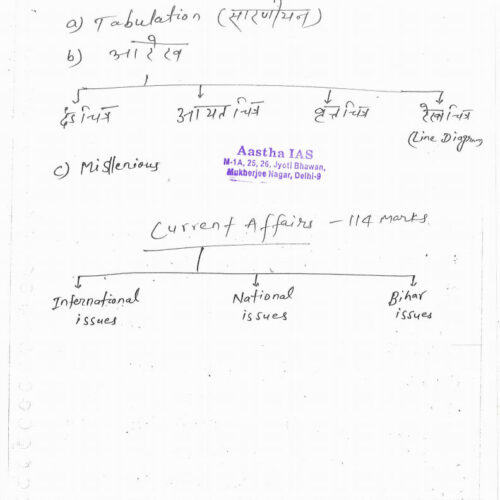 a) Tabulation (सारणीयन)
b) आरेख
दंड चित्र आयत चित्र वृत्त चित्र रेखा चित्र
(Line Diagram)
Aastha IAS
M-1A, 25, 26, Jyoti Bhawan,
Mukherjee Nagar, Delhi-9
c) Misllenious
Current Affairs - 114 marks.
International National Bihar
issues issues issues